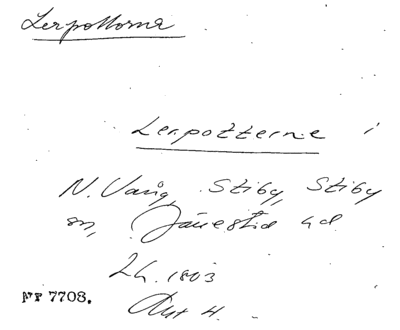 Lerpottorna
Lerpotterne i
N. Vång, Stiby, Stiby
sn, Järrestad hd
LH. 1803
Akt H.
Nr 7708.